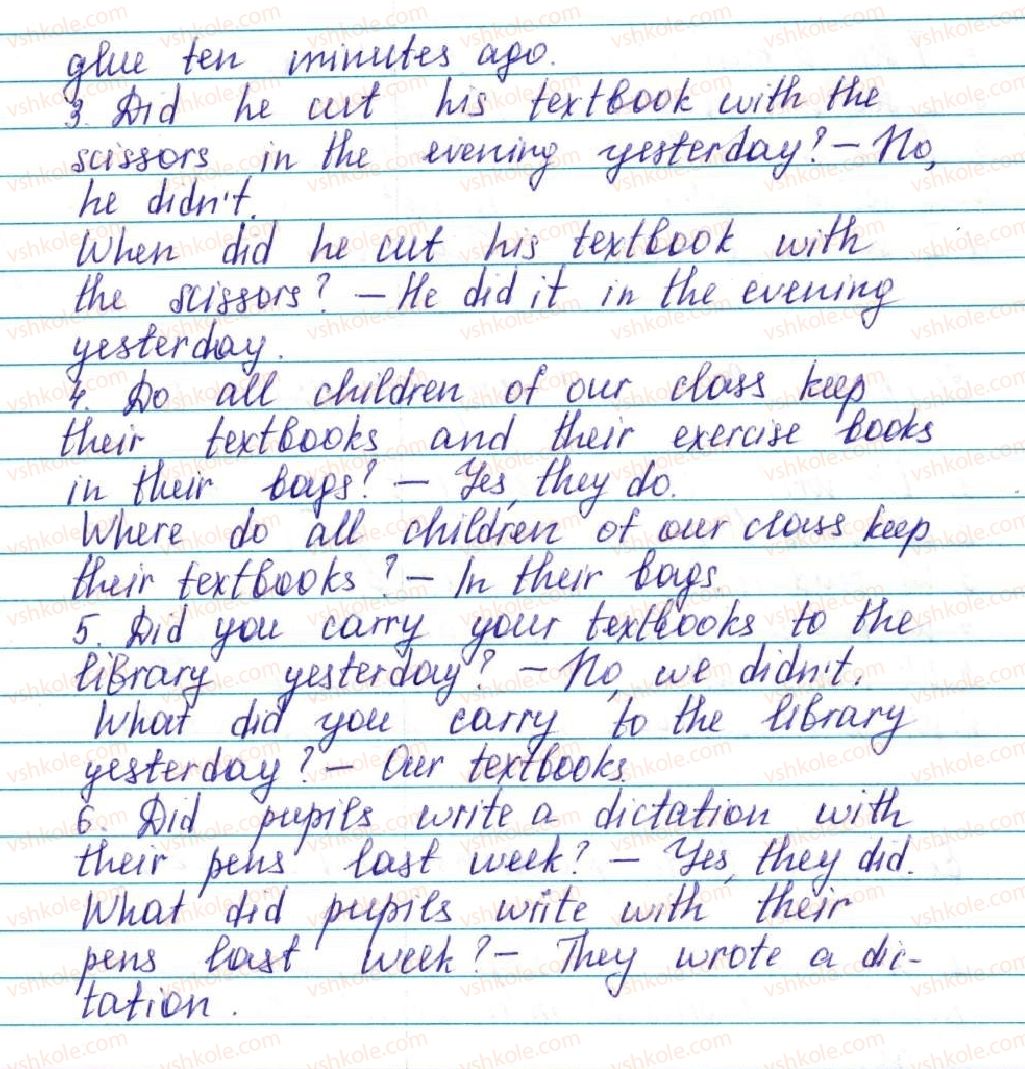 glue ten minutes ago.
3. Did he cut his textbook with the
scissors in the evening yesterday? – No,
he didn't.
When did he cut his textbook with
the scissors? – He did it in the evening
yesterday.
4. Do all children of our class keep
their textbooks and their exercise books
in their bags? – Yes, they do.
Where do all children of our class keep
their textbooks? – In their bags.
5. Did you carry your textbooks to the
library yesterday? – No, we didn't.
What did you carry to the library
yesterday? – Our textbooks.
6. Did pupils write a dictation with
their pens last week? – Yes, they did.
What did pupils write with their
pens last week? – They wrote a dic-
tation.